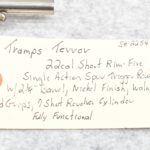 SN 2254
Tramps Terror
22cal Short Rim-Fire
Single Action Spur Trigger
w/ 2¼" Barrel, Nickel Finish,
Grips, 7 Shot Revolver Cylinder
Fully Functional